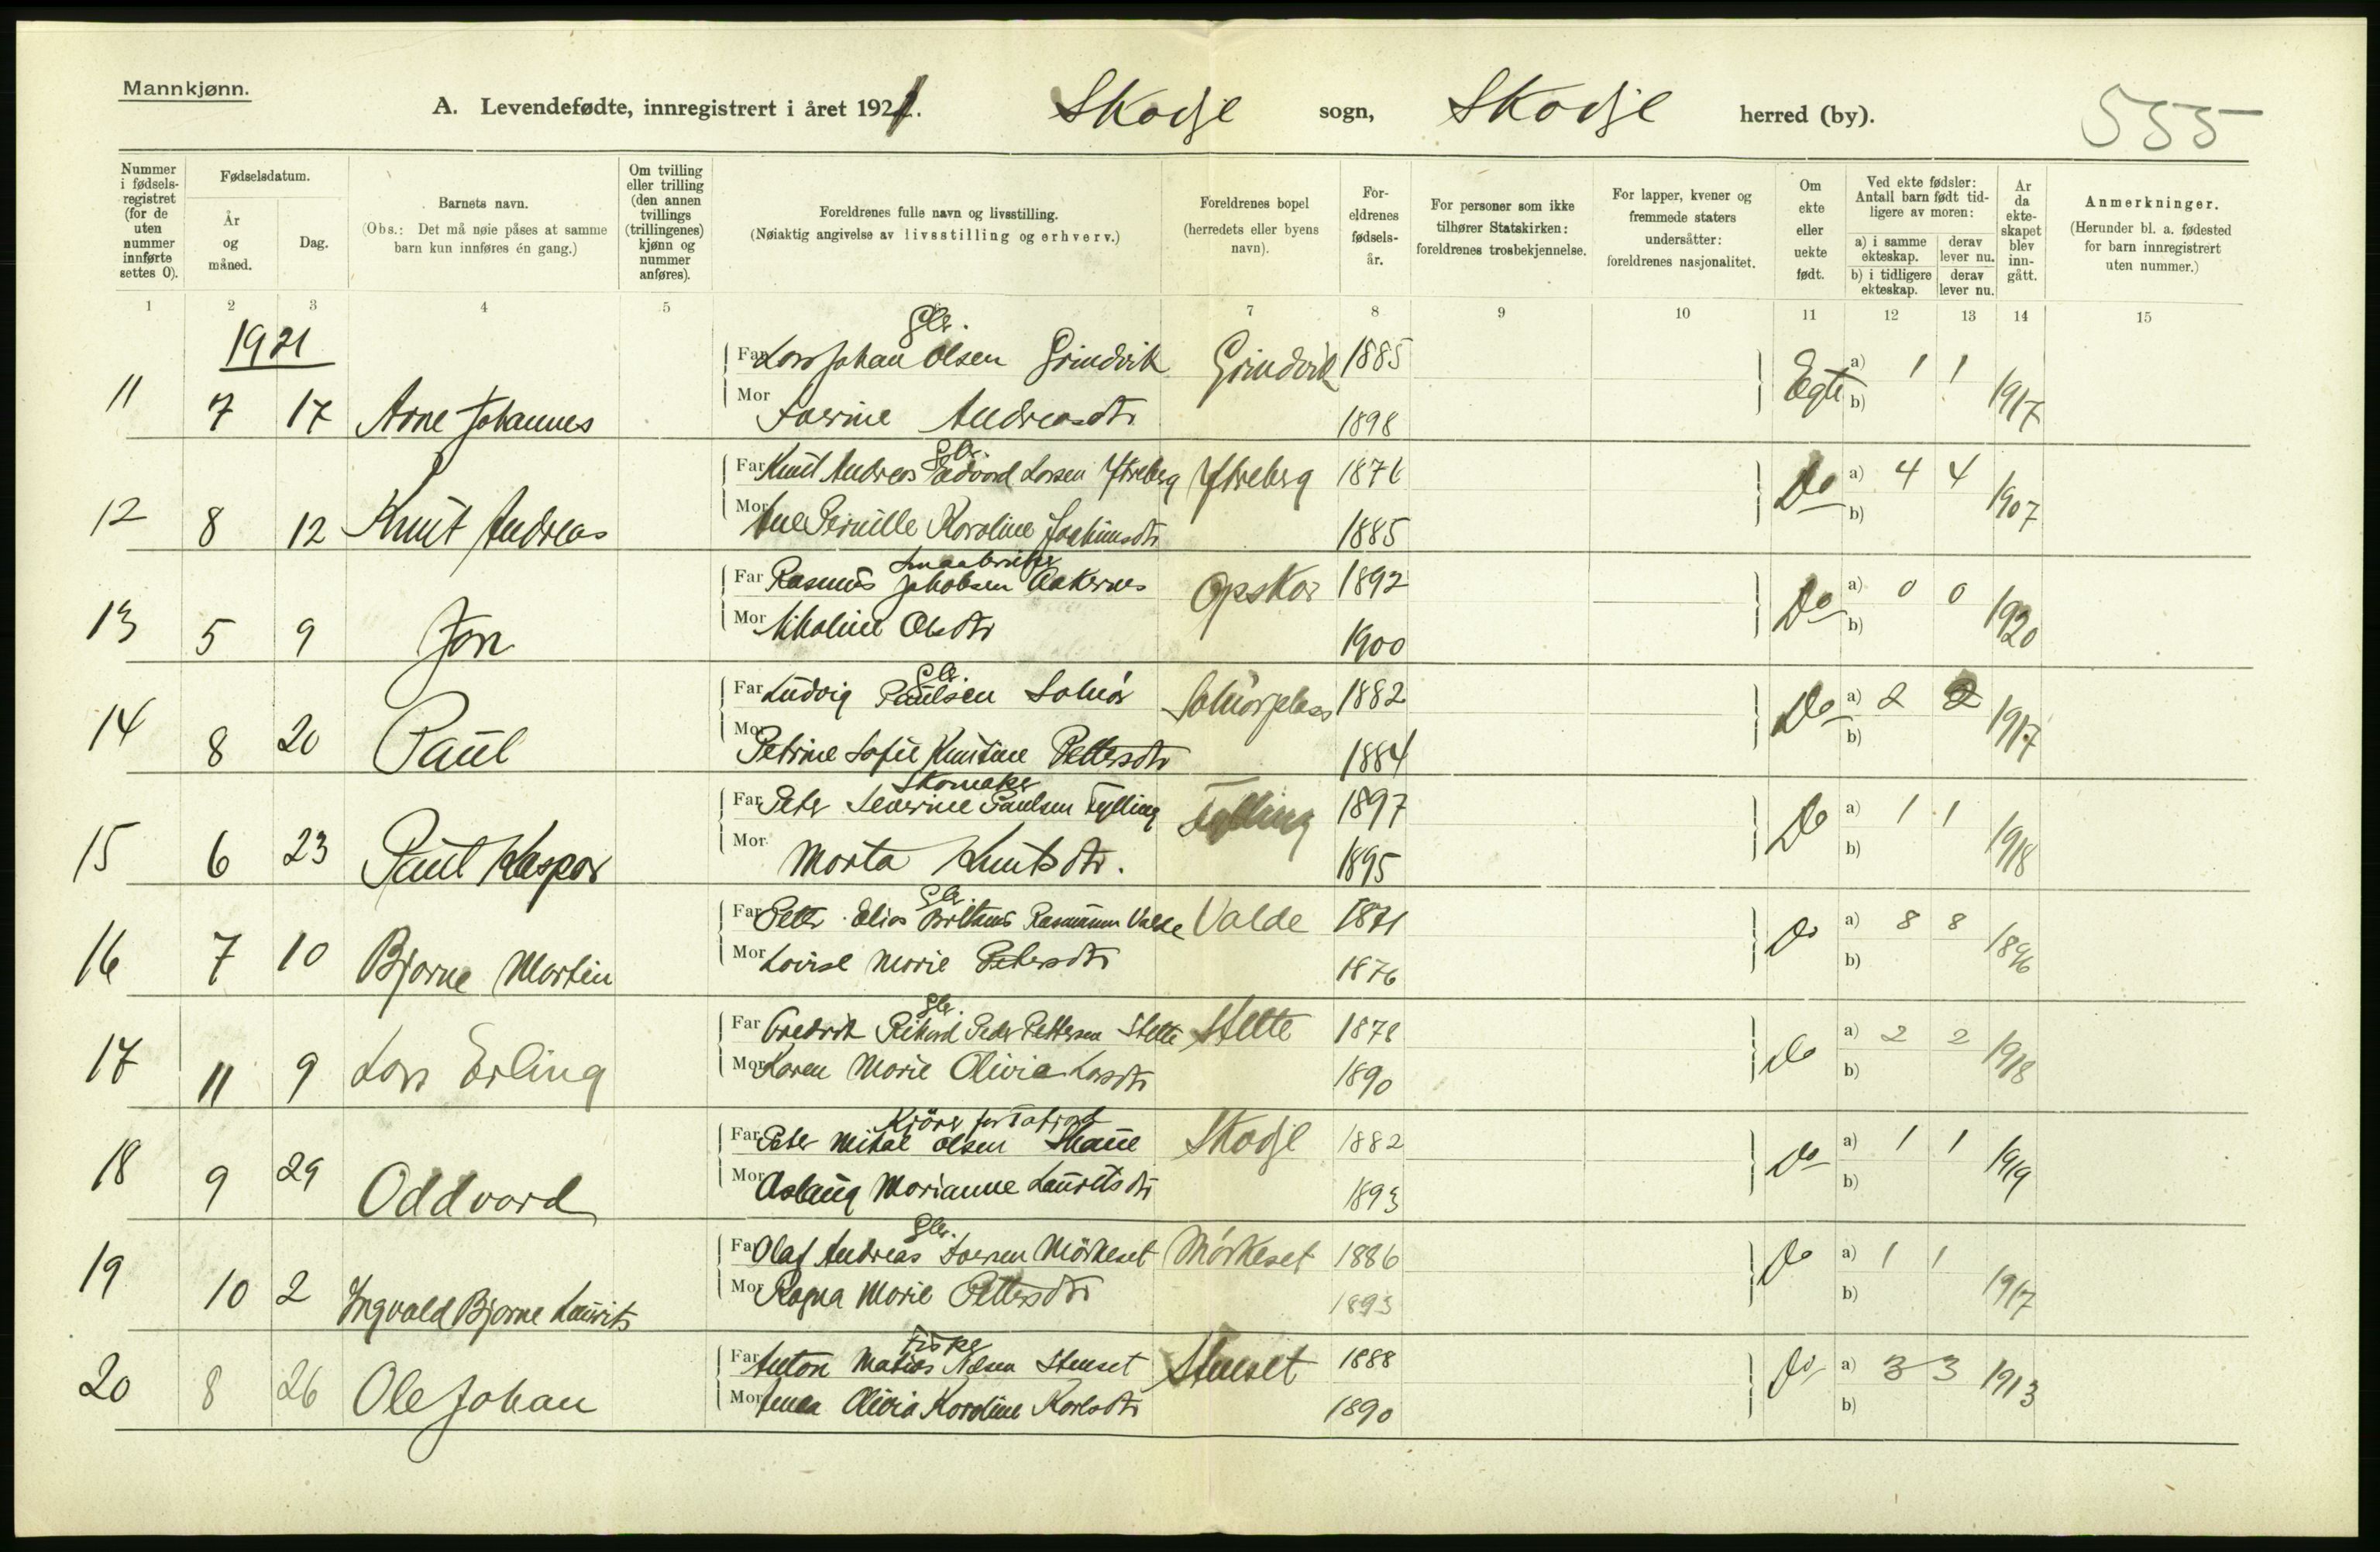 Mannkjønn.
A. Levendefødte, innregistrert i året 1921. Skodje sogn, Skodje herred (by). 555
Nummer i fødsels-registret (for de uten nummer innførte settes 0).
Fødselsdatum.
År og måned.
Dag.
Barnets navn.
(Obs.: Det må nøie påses at samme barn kun innføres én gang.)
Om tvilling eller trilling (den annen tvillings (trillingenes) kjønn og nummer anføres).
Foreldrenes fulle navn og livsstilling.
(Nøiaktig angivelse av livsstilling og erhverv.)
Foreldrenes bopel (herredets eller byens navn).
For-eldrenes fødsels-år.
For personer som ikke tilhører Statskirken: foreldrenes trosbekjennelse.
For lapper, kvener og fremmede staters undersåtter: foreldrenes nasjonalitet.
Om ekte eller uekte født.
Ved ekte fødsler: Antall barn født tid-ligere av moren:
a) i samme ekteskap. derav lever nu.
b) i tidligere ekteskap. derav lever nu.
Ar da ekte-skapet blev inn-gått.
Anmerkninger.
(Herunder bl. a. fødested for barn innregistrert uten nummer.)
1 2 3 4 5 6 7 8 9 10 11 12 13 14 15
1921
Gbr.
Far Lars Johan Olsen Grindvik Grindvik 1885
11 7 17 Arne Johannes Egte a) 1 1 b) 1917
Mor Severine Andreasdtr 1898
Gbr.
Far Knut Andreas Edvard Larsen Ytreberg Ytreberg 1876
12 8 12 Knut Andreas Do a) 4 4 b) 1907
Mor Ane Pernille Karoline Joakimsdtr 1885
Smaabruker
Far Rasmus Jakobsen Aakernes Opskar 1892
13 5 9 Jon Do a) 0 0 b) 1920
Mor Nikoline Olsdtr 1900
Gbr.
Far Ludvig Paulsen Solnør Solnørplass 1882
14 8 20 Paul Do a) 2 2 b) 1917
Mor Petrine Sofie Kristine Pettersdtr 1884
Skomaker
Far Peter Severine Paulsen Fylling Fylling 1897
15 6 23 Paul Kaspar Do a) 1 1 b) 1918
Mor Marta Knutsdtr. 1895
Gbr.
Far Petter Elias Rasmussen Valde Valde 1871
16 7 10 Bjarne Martin Do a) 8 8 b) 1896
Mor Lovise Marie Petersdtr 1876
Gbr.
Far Fredrik Rikard Peder Pettersen Stette Stette 1878
17 11 9 Lars Erling Do a) 2 2 b) 1918
Mor Karen Marie Olivia Larsdtr 1890
Kjörer
Far Peter Mikal Olsen Skodje 1882
18 9 29 Oddvard Do a) 1 1 b) 1919
Mor Aslaug Marianne Lauritsdtr 1893
Gbr.
Far Olaf Andreas Iversen Mörkeset Mörkeset 1886
19 10 2 Ingvald Bjarne Laurits Do a) 1 1 b) 1917
Mor Ragna Marie Pettersdtr 1893
Fisker
Far Anton Matias Nilsen Stenset Stenset 1888
20 8 26 Ole Johan Do a) 3 3 b) 1913
Mor Anna Olivia Karoline Karlsdtr 1890